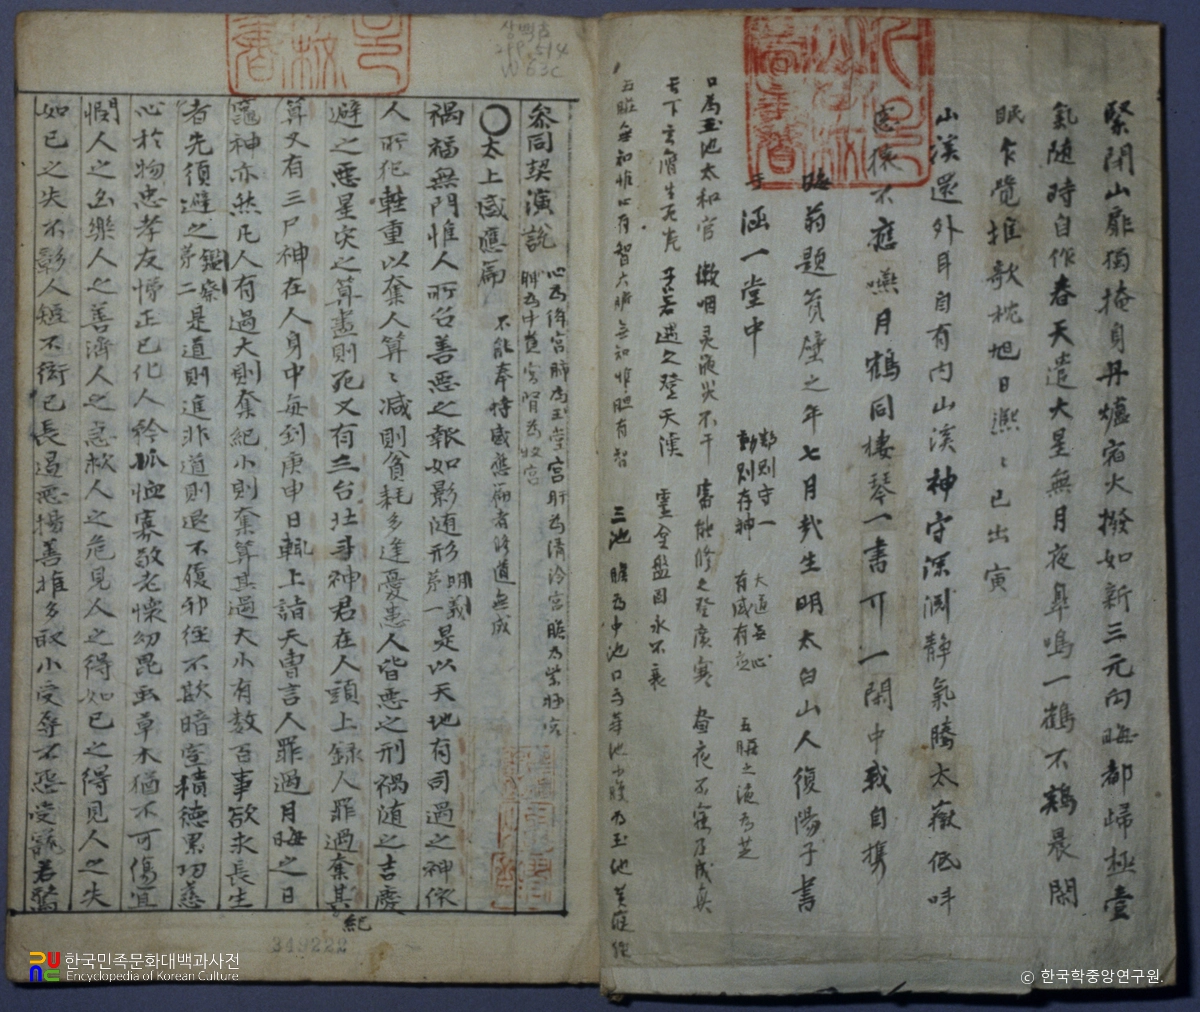 緊閉山扉獨掩身丹爐宿火撥如新三元向晦都歸極壹
氣隨時自作春天遣大星無月夜皐鳴一鶴不鷄晨閑
眠乍覺推欹枕旭日凞〻已出寅
山溪還外耳自有內山溪神守深淵靜氣騰太嶽低呌
猿不應嘯月鶴同棲琴一書可一閑中我自携
晦翁題 壁之年七月哉生明太白山人復陽子書
于涵一堂中
默則守一
動則存神
大道無心
有感有應
五臟之液為芝
口為玉池太和官 漱咽灵液災不干 審能修之登廣寒 晝夜不寐乃成眞
天下 子若遇之登天漢
五臟無知惟心有智六腑無知惟胆有智 三池 膽為中池口為華池小腹為玉池黃庭經
參同契演說
心為絳宮肺為玉堂宮肝為清冷宮膽為紫 宮
脾為中黃宮腎為 宮
○太上感應篇
不能奉持感應篇者修道無成
禍福無門惟人所召善惡之報如影随形明義第一是以天地有司過之神依
人所犯輕重以奪人算〻減則貧耗多逢憂患人皆惡之刑禍随之吉慶
避之惡星灾之算盡則死又有三台北斗神君在人頭上録人罪過奪其紀
算又有三尸神在人身中每到庚申日輒上詣天曹言人罪過月晦之日
竈神亦然凡人有過大則奪紀小則奪算其過大小有数百事欲求長生
者先須避之鑑察第二是道則進非道則退不履邪徑不欺暗室積德累功慈
心於物忠孝友悌正已化人矜孤恤寡敬老懷幼昆虫草木猶不可傷宜
憫人之凶樂人之善濟人之急救人之危見人之得如已之得見人之失
如已之失不彰人短不衒已長遏惡揚善推多取小受辱不怨受寵若驚
상백古
299.514
W 63c
349222
한국민족문화대백과사전
Encyclopedia of Korean Culture
© 한국학중앙연구원.